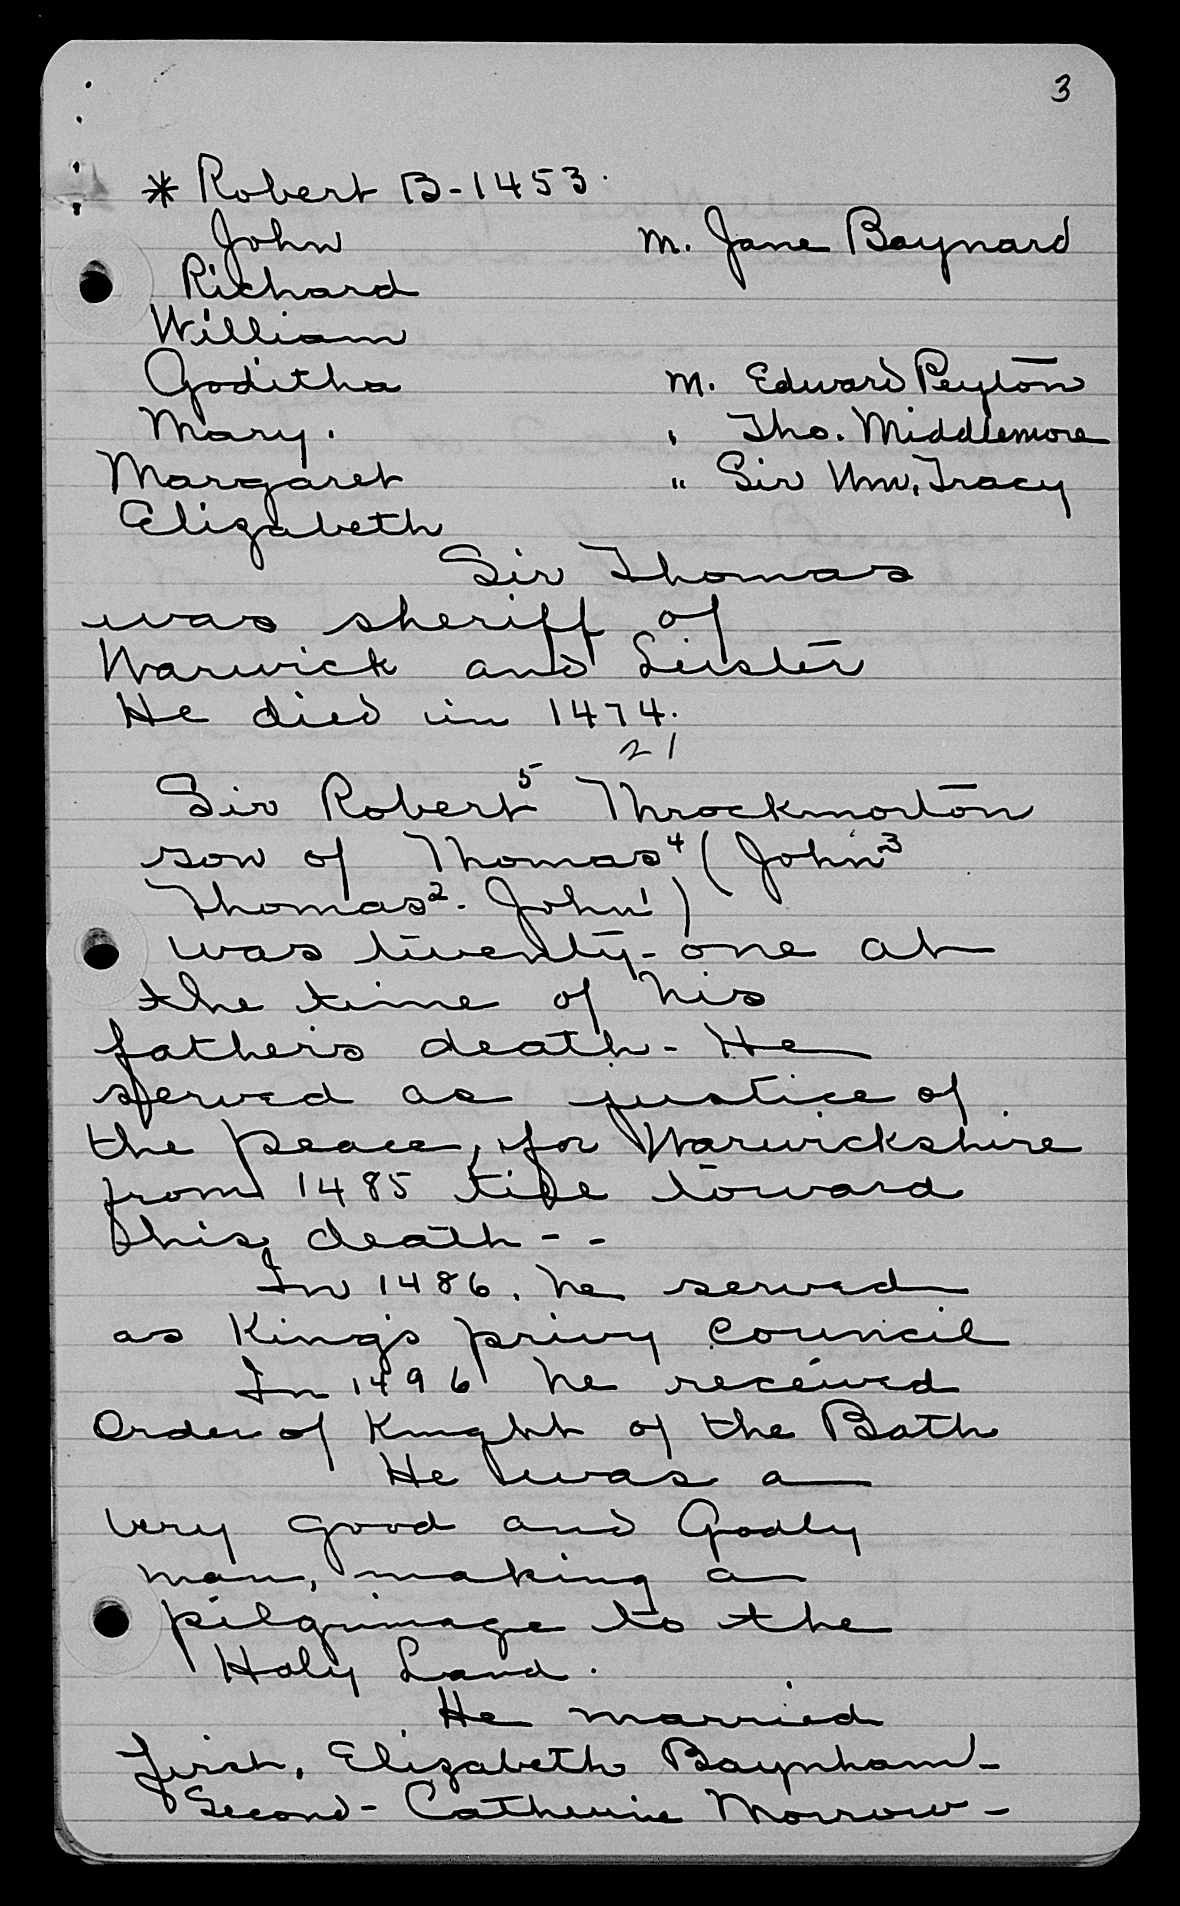 3
* Robert B-1453.
John m. Jane Baynard
Richard
William
Goditha m. Edward Peyton
Mary. " Tho. Middlemore
Margaret " Sir Wm. Tracy
Elizabeth
Sir Thomas
was sheriff of
Warwick and Leister
He died in 1474.
21
Sir Robert⁵ Throckmorton
son of Thomas⁴ (John³
Thomas². John¹)
was twenty-one at
the time of his
father's death - He
served as justice of
the peace, for Warwickshire
from 1485 till toward
his death - -
In 1486, he served
as King's privy council
In 1496 he received
Order of Knight of the Bath
He was a
very good and Godly
man, making a
pilgrimage to the
Holy Land.
He married
first, Elizabeth Baynham -
Second - Catherine Morrow -